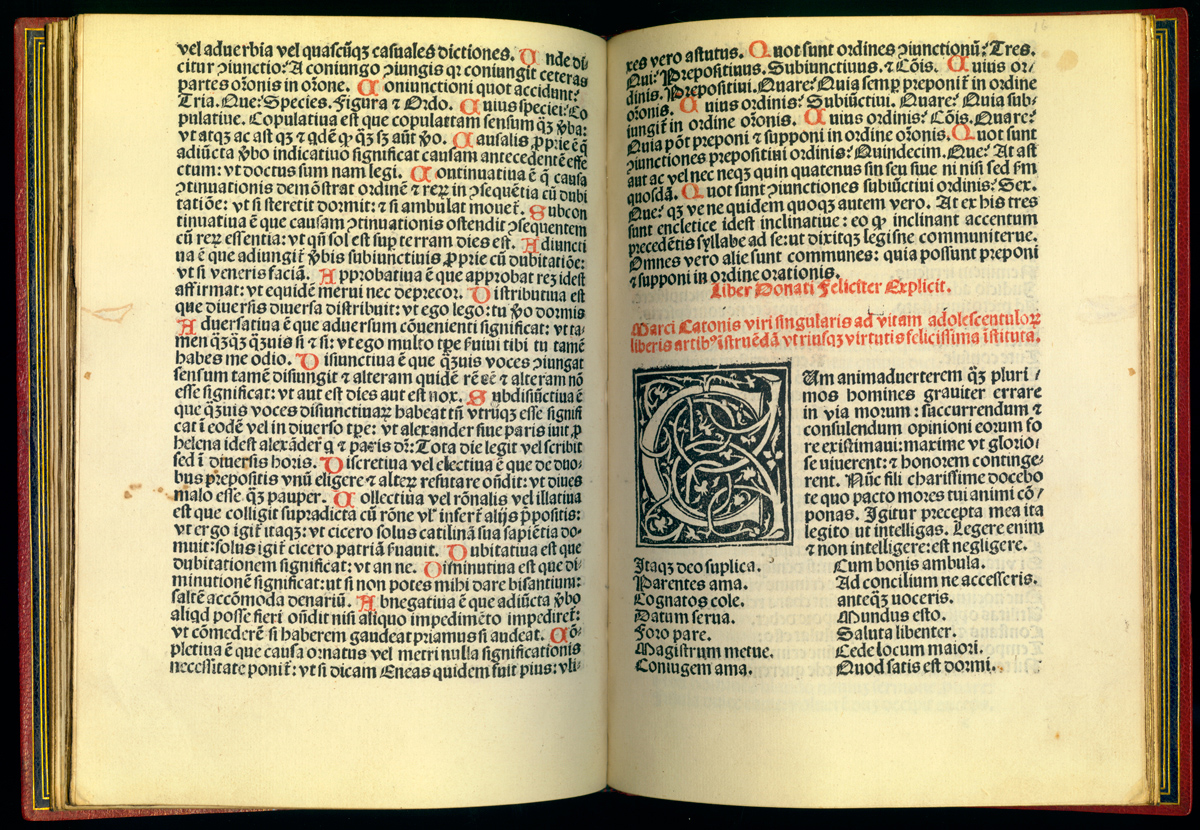 vel aduerbia vel quascūqꝫ casuales dictiones. Unde di⸗
citur ꝯiunctio? A coniungo ꝯiungis qꝛ coniungit ceteras
partes oꝛonis in oꝛone. Coniunctioni quot accidunt?
Tria. Que? Species. Figura ⁊ Oꝛdo. Cuius speciei? Co
pulatiue. Copulatiua est que copulat tam sensum qꝫ ꝟba:
vt atqꝫ ac ast qꝫ ⁊ qdē ꝙ qꝫ sꝫ aūt ꝟo. Causalis ꝓprie ē q̄
adiūcta ꝟbo indicatiuo significat causam antecedentē effe
ctum: vt doctus sum nam legi. Continuatiua ē q̄ causa
ꝯtinuationis demōstrat oꝛdinē ⁊ reꝝ in ꝯsequētia cū dubi
tatiōe: vt si steretit dormit: ⁊ si ambulat mouet̄. Subcon
tinuatiua ē que causam ꝯtinuationis ostendit ꝯsequentem
cū reꝝ essentia: vt qn̄ sol est suꝑ terram dies est. Adiuncti
ua ē que adiungit̄ ꝟbis subiunctiuis ꝓprie cū dubitatiōe:
vt si veneris faciā. Approbatiua ē que approbat reꝫ idest
affirmat: vt equidē merui nec deprecor. Distributiua est
que diuersis diuersa distribuit: vt ego lego: tu ꝟo doꝛmis
Aduersatiua ē que aduersum cōuenienti significat: vt ta⸗
men qꝫqꝫ qꝫuis si ⁊ si: vt ego multo tꝑe ẜuiui tibi tu tamē
habes me odio. Disiunctiua ē que qꝫuis voces ꝯiungat
sensum tamē disiungit ⁊ alteram quidē rē eē ⁊ alteram nō
esse significat: vt aut est dies aut est nox. Subdisiūctiua ē
que qꝫuis voces disiunctiuaꝝ habeat tn̄ vtrūqꝫ esse signifi
cat ī eodē vel in diuerso tꝑe: vt alexander siue paris iuit ꝑ
helena idest alexāder q̄ ⁊ paris dr̄: Tota die legit vel scribit
sed ī diuersis horis. Discretiua vel electiua ē que de duo⸗
bus prepositis vnū eligere ⁊ alteꝝ refutare on̄dit: vt diues
malo esse qꝫ pauper. Collectiua vel rōnalis vel illatiua
est que colligit supradicta cū rōne vl̓ infert̄ alijs p̄positis:
vt ergo igit̄ itaqꝫ: vt cicero solus catilinā sua sapiētia do⸗
muit: solus igit̄ cicero patriā ẜuauit. Dubitatiua est que
dubitationem significat: vt an ne. Diminutiua est que di⸗
minutionē significat: ut si non potes mihi dare bisantium:
saltē accōmoda denariū. Abnegatiua ē que adiūcta ꝟbo
aliqd posse fieri on̄dit nisi aliquo impedimēto impediret̄:
vt cōmederē si haberem gaudeat priamus si audeat. Cō⸗
pletiua ē que causa oꝛnatus vel metri nulla significationis
necessitate ponit̄: vt si dicam Eneas quidem fuit pius: vli⸗
xes vero astutus. Quot sunt oꝛdines ꝯiunctionū? Tres.
Qui? Prepositiuus. Subiunctiuus. ⁊ Cōis. Cuius oꝛ⸗
dinis. Prepositiui. Quare? Quia semꝑ preponit̄ in oꝛdine
oꝛōnis. Cuius oꝛdinis? Subiūctiui. Quare? Quia sub⸗
iungit̄ in oꝛdine oꝛonis. Cuius oꝛdinis? Cōis. Quare?
Quia pōt preponi ⁊ supponi in oꝛdine oꝛōnis. Quot sunt
ꝯiunctiones prepositiui oꝛdinis? Quindecim. Que? At ast
aut ac vel nec neqꝫ quin quatenus sin seu siue ni nisi sed ẜm
quosdā. Quot sunt ꝯiunctiones subiūctiui oꝛdinis? Sex.
Que? qꝫ ve ne quidem quoqꝫ autem vero. At ex his tres
sunt encletice idest inclinatiue: eo ꝙ inclinant accentum
precedētis syllabe ad se: ut dixitqꝫ legisne communiterue.
Omnes vero alie sunt communes: quia possunt preponi
⁊ supponi in oꝛdine oꝛationis.
Liber Donati Feliciter Explicit.
Marci Catonis viri singularis ad vitam adolescentuloꝝ
liberis artibꝰ īstruēdā vtriusqꝫ virtutis felicissima īstituta.
CUm animaduerterem qꝫ pluri⸗
mos homines grauiter errare
in via moꝛum: succurrendum ⁊
consulendum opinioni eoꝛum fo
re existimaui: maxime vt gloꝛio⸗
se viuerent: ⁊ honoꝛem continge⸗
rent. Nūc fili charissime docebo
te quo pacto moꝛes tui animi cō⸗
ponas. Igitur precepta mea ita
legito ut intelligas. Legere enim
⁊ non intelligere: est negligere.
Itaqꝫ deo suplica.
Parentes ama.
Cognatos cole.
Datum serua.
Foꝛo pare.
Magistrum metue.
Coniugem ama.
Cum bonis ambula.
Ad concilium ne accesseris.
anteqꝫ voceris.
Mundus esto.
Saluta libenter.
Cede locum maioꝛi.
Quod satis est doꝛmi.